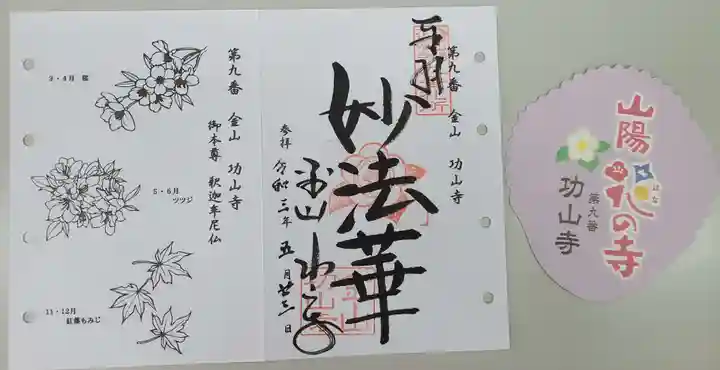 奉拝
第九番 金山 功山寺
妙法華
参拝 令和三年 五月廿三日
第九番 金山 功山寺
御本尊 釈迦牟尼仏
3・4月 桜
5・6月
ツツジ
11・12月
紅葉もみじ
山陽
花の寺
はな
第九番
功山寺